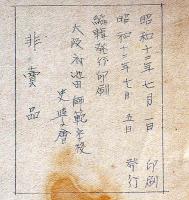 昭和十二年七月一日 印刷
昭和十二年七月五日 發行
編輯發行印刷
大阪府池田師範学校
史学会
非賣品